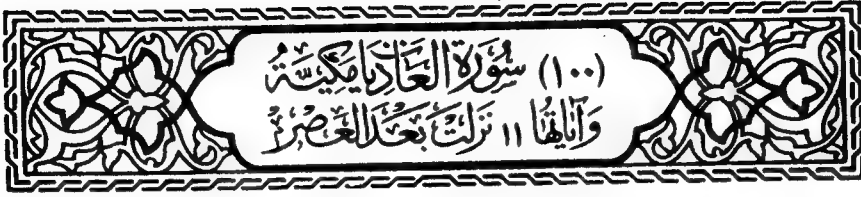 (١٠٠) سُورَةُ العَاديَات مَكيَّةُ
وَآيَاتُهَا ١١ نَزلَتْ بَعْدَ العَصْرِ